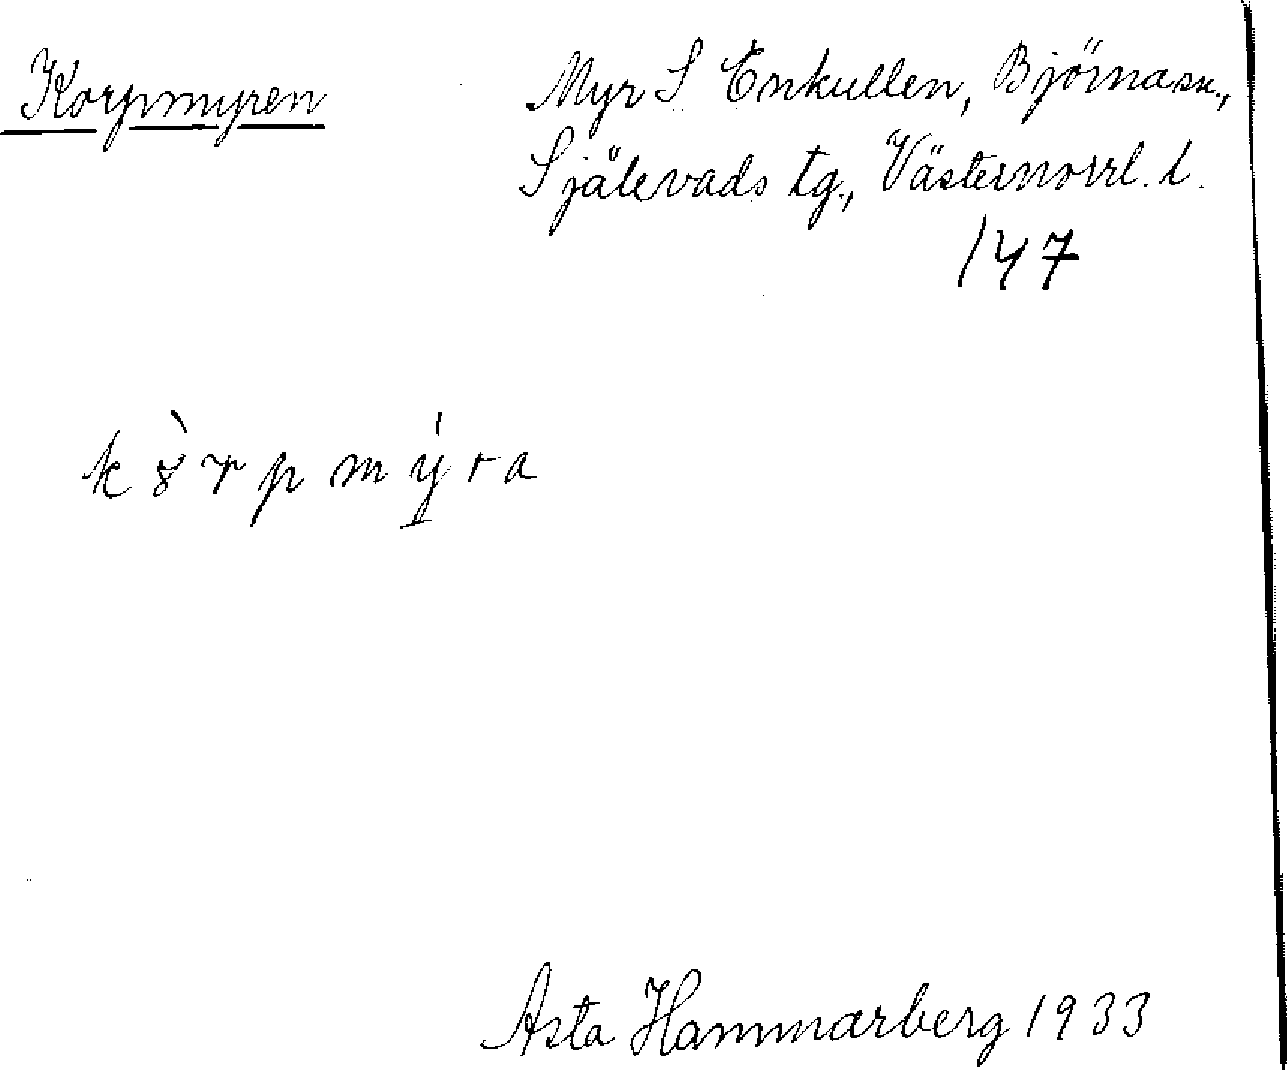 Korpmyren
Myr S Enkullen, Björnasn.,
Själevads tg., Västernorrl. l.
147
k r p m y r a
Asta Hammarberg 1933